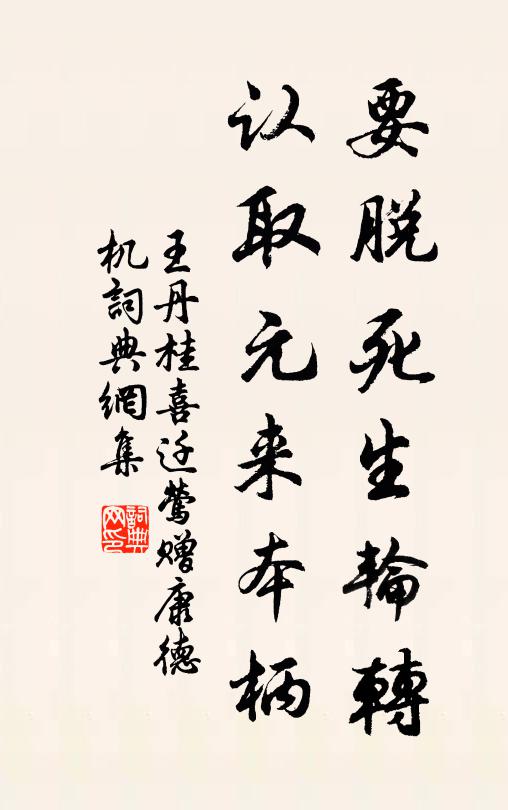 要脱死生輪轉
认取元来本柄
王丹桂喜迁莺赠康德
机詞典網集
詞典网印